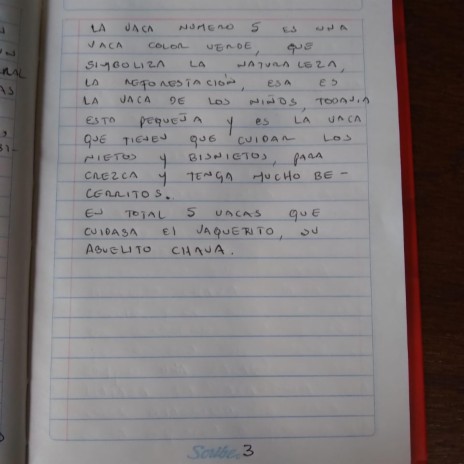 LA VACA NUMERO 5 ES UNA
VACA COLOR VERDE, QUE
SIMBOLIZA LA NATURALEZA,
LA REFORESTACIÓN, ESA ES
LA VACA DE LOS NIÑOS, TODAVIA
ESTA PEQUEÑA Y ES LA VACA
QUE TIENEN QUE CUIDAR LOS
NIETOS Y BISNIETOS, PARA
CREZCA Y TENGA MUCHO BE-
CERRITOS.
EN TOTAL 5 VACAS QUE
CUIDABA EL VAQUERITO, SU
ABUELITO CHAVA.
Scribe 3